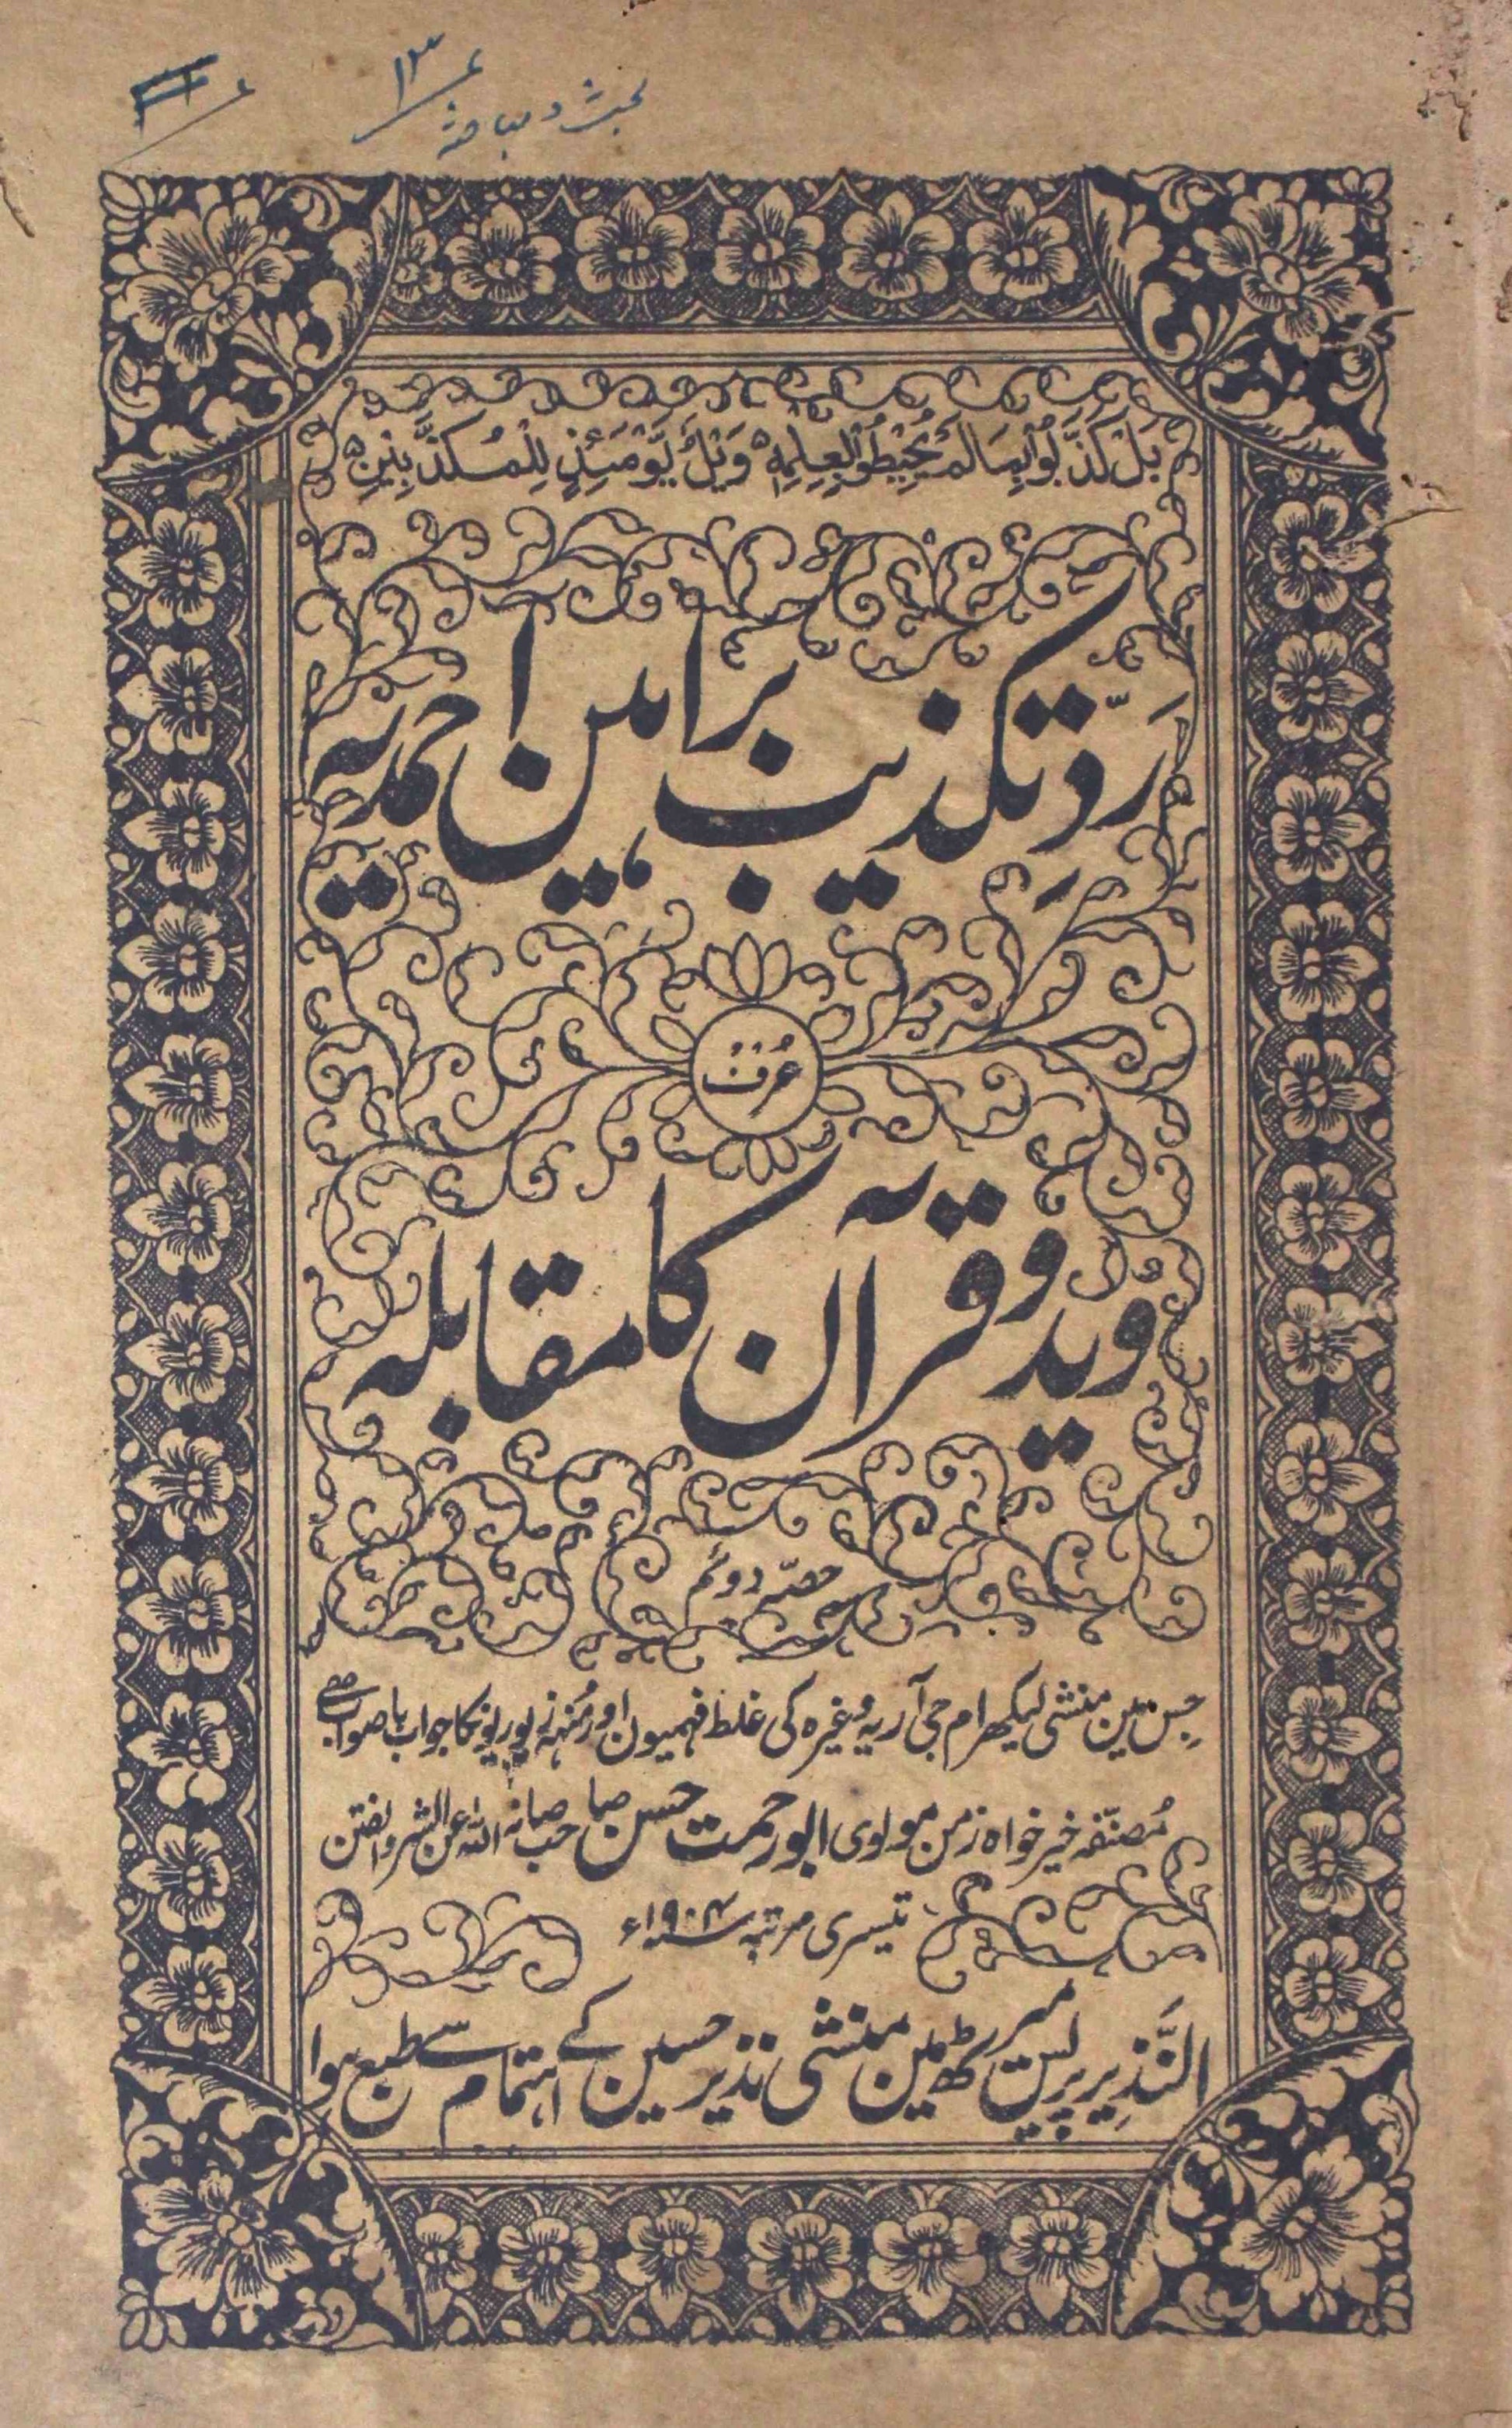 بحث و مباحثہ
۱۳
بَلْ كَذَّبُوْا بِمَا لَمْ يُحِيْطُوْا بِعِلْمِهٖ وَيْلٌ يَّوْمَئِذٍ لِّلْمُكَذِّبِيْنَ
رَدِّ تکذیب براہین احمدیہ
عُرف
وید و قرآن کا مقابلہ
حصّہ دوئم
جِس مین منشی لیکھرام جی آریہ وغیرہ کی غلط فہمیون اور مُنہ زوریونکا جواب باصواب ہے
مُصنّفہ خیر خواہ زمن مولوی ابو رحمت حسن صاحب صانہ اللہ عن الشر والفتن
تیسری مرتبہ سنہ ۱۹۰۴ء
النَّذِیر پریس میرٹھ مین منشی نذیر حسین کے اہتمام سے طبع ہوا